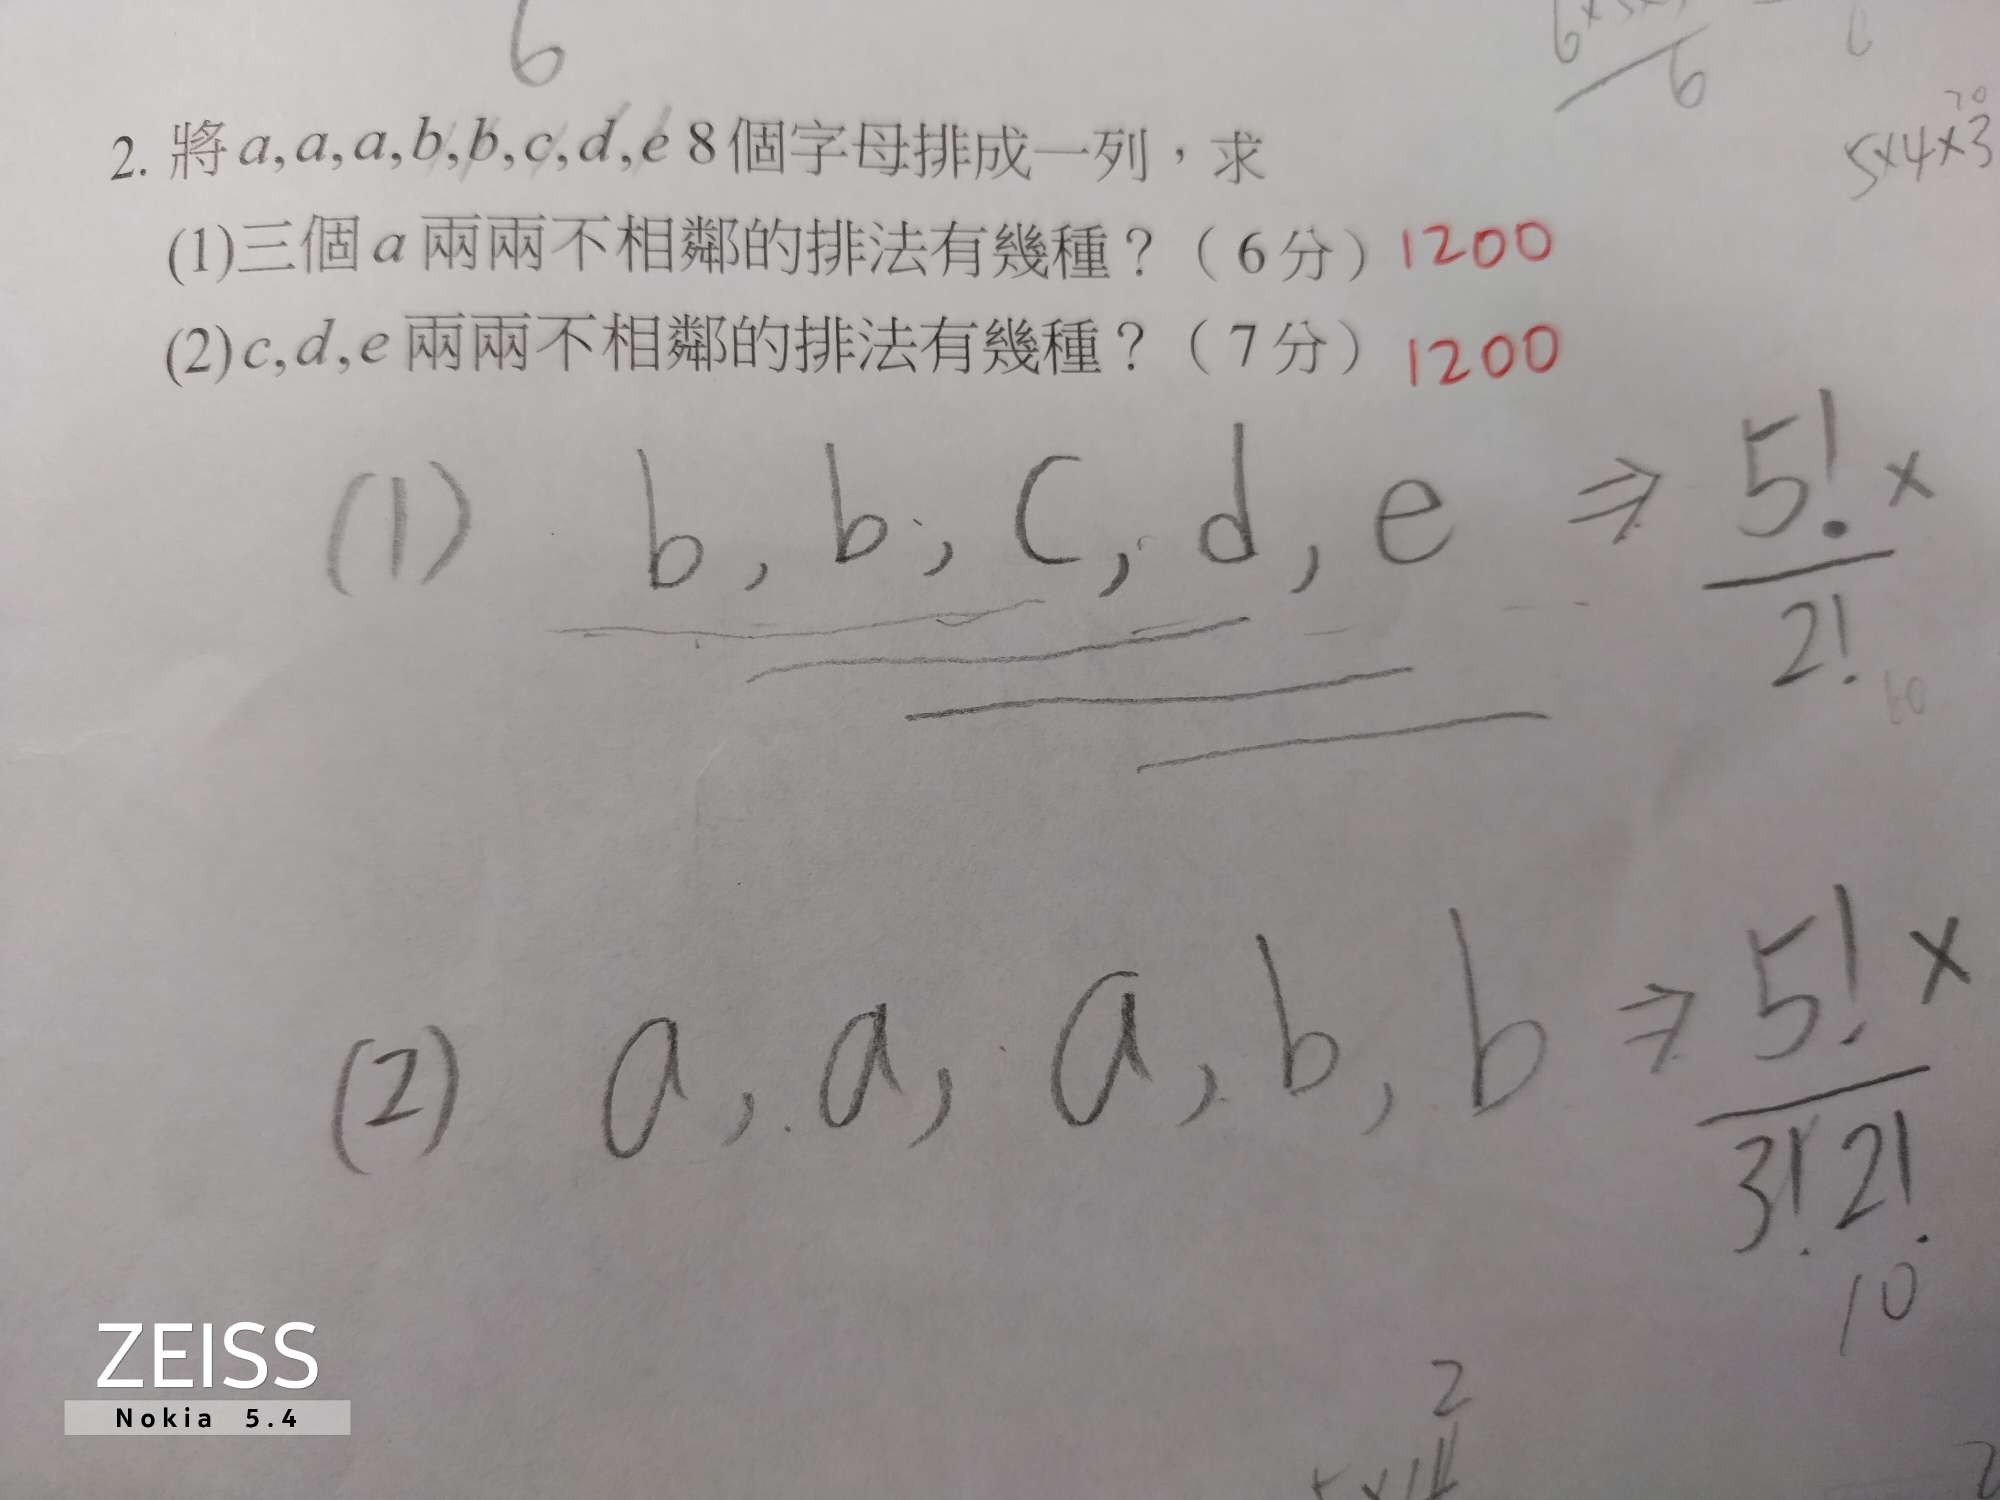 6
6
5×4×3
20
2. 將a,a,a,b,b,c,d,e 8個字母排成一列，求
(1)三個a兩兩不相鄰的排法有幾種？（6分）1200
(2)c,d,e兩兩不相鄰的排法有幾種？（7分）1200
(1) b, b, c, d, e ⇒ 5! ×
2!
60
(2) a, a, a, b, b ⇒ 5! ×
3! 2!
10
2
ZEISS
Nokia 5.4